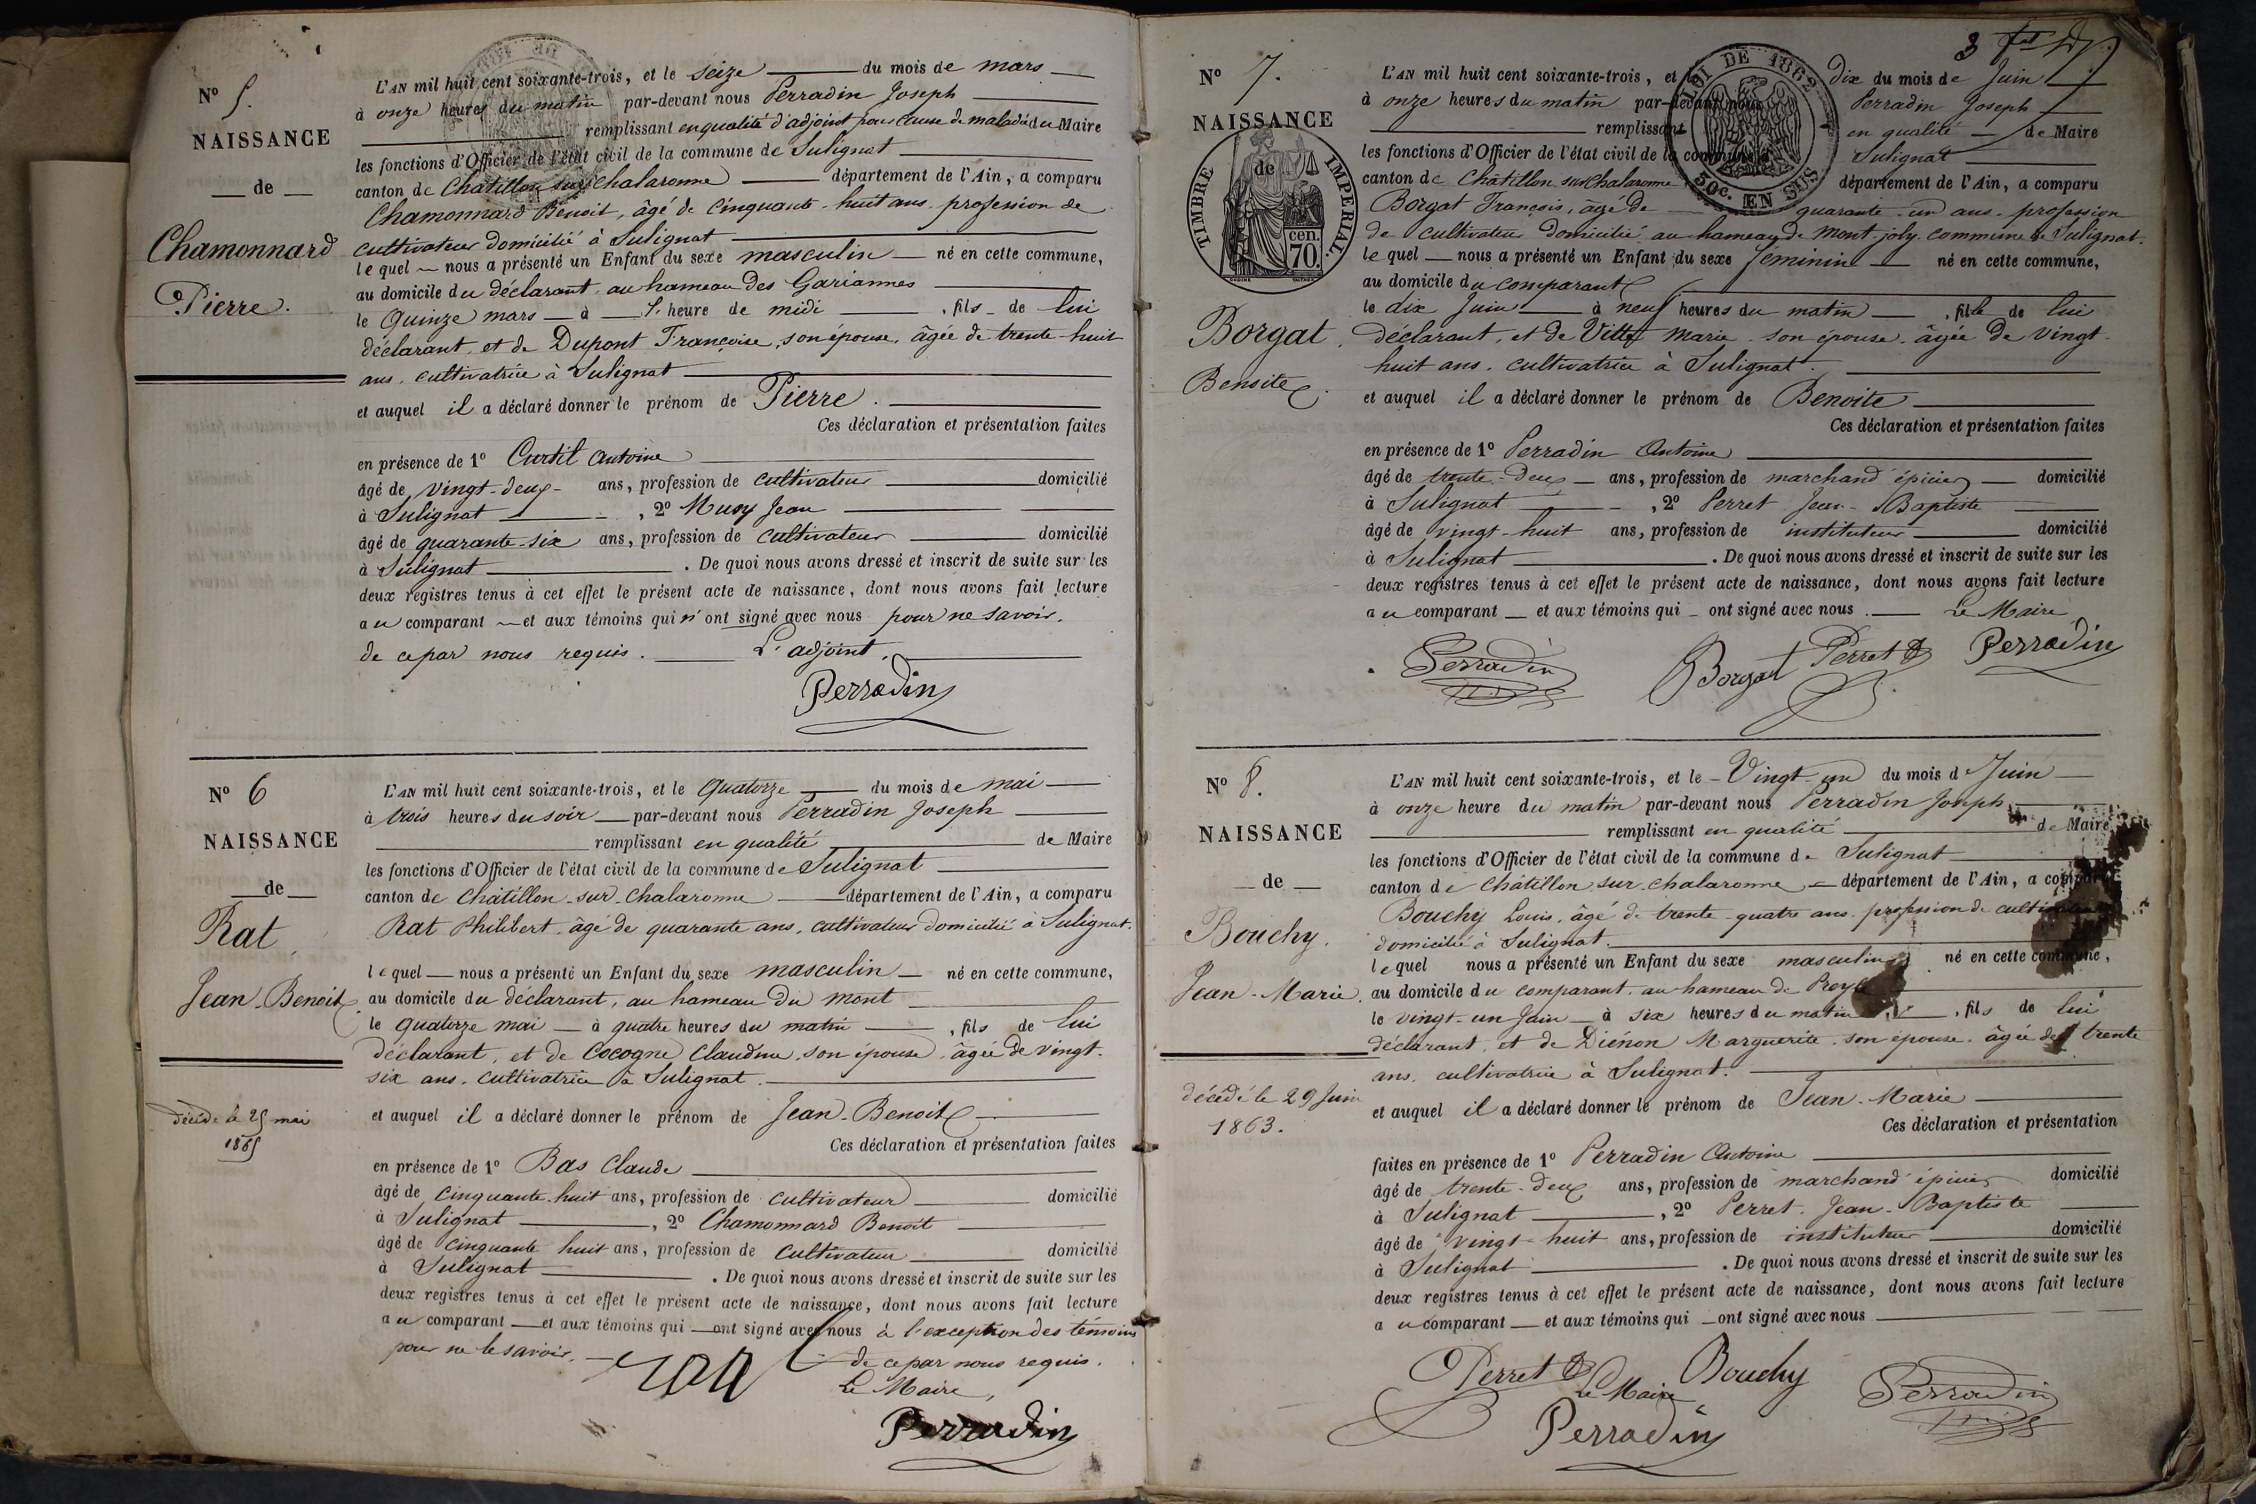 N° 5.
NAISSANCE
de
Chamonnard
Pierre.
L'AN mil huit cent soixante-trois, et le seize du mois de mars
à onze heures du matin par-devant nous Perradin Joseph
remplissant en qualité d'adjoint pour cause de maladie du Maire
les fonctions d'Officier de l'état civil de la commune de Sulignat
canton de Chatillon sur Chalaronne département de l'Ain, a comparu
Chamonnard Benoit, âgé de cinquante-huit ans, profession de
cultivateur domicilié à Sulignat
lequel nous a présenté un Enfant du sexe masculin né en cette commune,
au domicile du déclarant, au hameau des Gariannes
le Quinze mars à heure de midi, fils de lui
déclarant, et de Dupont Françoise, son épouse, âgée de trente-huit
ans, cultivatrice à Sulignat
et auquel il a déclaré donner le prénom de Pierre.
Ces déclaration et présentation faites
en présence de 1° Curtil Antoine
âgé de vingt-deux ans, profession de cultivateur domicilié
à Sulignat, 2° Musy Jean
âgé de quarante-six ans, profession de cultivateur domicilié
à Sulignat. De quoi nous avons dressé et inscrit de suite sur les
deux registres tenus à cet effet le présent acte de naissance, dont nous avons fait lecture
au comparant et aux témoins qui n'ont signé avec nous pour ne savoir,
de ce par nous requis. L'adjoint,
Perradin
N° 6
NAISSANCE
de
Rat
Jean-Benoit
décédé le 25 mai
1865
L'AN mil huit cent soixante-trois, et le Quatorze du mois de mai
à trois heures du soir par-devant nous Perradin Joseph
remplissant en qualité de Maire
les fonctions d'Officier de l'état civil de la commune de Sulignat
canton de Châtillon-sur-Chalaronne département de l'Ain, a comparu
Rat Philibert, âgé de quarante ans, cultivateur domicilié à Sulignat.
lequel nous a présenté un Enfant du sexe masculin né en cette commune,
au domicile du déclarant, au hameau du mont
le quatorze mai à quatre heures du matin, fils de lui
déclarant, et de Cocogne Claudine, son épouse, âgée de vingt-
six ans, cultivatrice à Sulignat.
et auquel il a déclaré donner le prénom de Jean-Benoit
Ces déclaration et présentation faites
en présence de 1° Bas Claude
âgé de cinquante-huit ans, profession de cultivateur domicilié
à Sulignat, 2° Chamonnard Benoit
âgé de cinquante huit ans, profession de cultivateur domicilié
à Sulignat. De quoi nous avons dressé et inscrit de suite sur les
deux registres tenus à cet effet le présent acte de naissance, dont nous avons fait lecture
au comparant et aux témoins qui ont signé avec nous à l'exception des témoins
pour ne le savoir, de ce par nous requis.
Le Maire,
Perradin
3
N° 7.
NAISSANCE
de
TIMBRE IMPERIAL
70 cen.
LOI DE 1862
50c. EN SUS
Borgat
Benoite
L'AN mil huit cent soixante-trois, et le dix du mois de Juin
à onze heures du matin par-devant nous Perradin Joseph
remplissant en qualité de Maire
les fonctions d'Officier de l'état civil de la commune d Sulignat
canton de Châtillon sur Chalaronne département de l'Ain, a comparu
Borgat François, âgé de quarante-un ans, profession
de cultivateur domicilié au hameau de Mont-joly commune de Sulignat.
lequel nous a présenté un Enfant du sexe féminin né en cette commune,
au domicile du comparant
le dix Juin à neuf heures du matin, fille de lui
déclarant, et de Villet Marie son épouse, âgée de vingt-
huit ans, cultivatrice à Sulignat.
et auquel il a déclaré donner le prénom de Benoite
Ces déclaration et présentation faites
en présence de 1° Perradin Antoine
âgé de trente-deux ans, profession de marchand épicier domicilié
à Sulignat, 2° Perret Jean-Baptiste
âgé de vingt-huit ans, profession de instituteur domicilié
à Sulignat. De quoi nous avons dressé et inscrit de suite sur les
deux registres tenus à cet effet le présent acte de naissance, dont nous avons fait lecture
au comparant et aux témoins qui ont signé avec nous. Le Maire
Perradin Borgat Perret Perradin
N° 8.
NAISSANCE
de
Bouchy.
Jean-Marie.
décédé le 29 Juin
1863.
L'AN mil huit cent soixante-trois, et le Vingt-un du mois d Juin
à onze heure du matin par-devant nous Perradin Joseph
remplissant en qualité de Maire
les fonctions d'Officier de l'état civil de la commune de Sulignat
canton de Châtillon sur Chalaronne département de l'Ain, a comparu
Bouchy Louis, âgé de trente-quatre ans, profession de cultivateur
domicilié à Sulignat.
lequel nous a présenté un Enfant du sexe masculin né en cette commune,
au domicile du comparant, au hameau de
le vingt-un Juin à six heures du matin, fils de lui
déclarant, et de Diénon Marguerite, son épouse, âgée de trente
ans, cultivatrice à Sulignat.
et auquel il a déclaré donner le prénom de Jean-Marie
Ces déclaration et présentation
faites en présence de 1° Perradin Antoine
âgé de trente-deux ans, profession de marchand épicier domicilié
à Sulignat, 2° Perret Jean-Baptiste
âgé de vingt-huit ans, profession de instituteur domicilié
à Sulignat. De quoi nous avons dressé et inscrit de suite sur les
deux registres tenus à cet effet le présent acte de naissance, dont nous avons fait lecture
au comparant et aux témoins qui ont signé avec nous
Perret Bouchy Perradin
Le Maire
Perradin